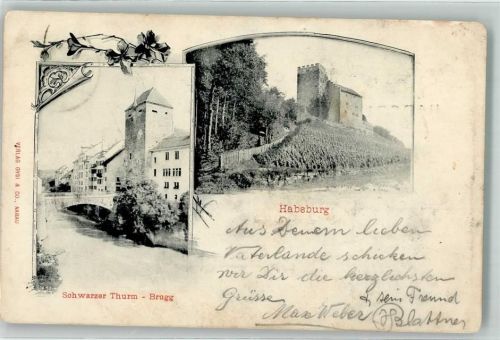 Habsburg
Schwarzer Thurm - Brugg
VERLAG GYSI & CO., AARAU
Aus Deinem lieben
Vaterlande schicken
wir Dir die herzlichsten
Grüsse
& sein Freund
Max Weber (H)Blattner